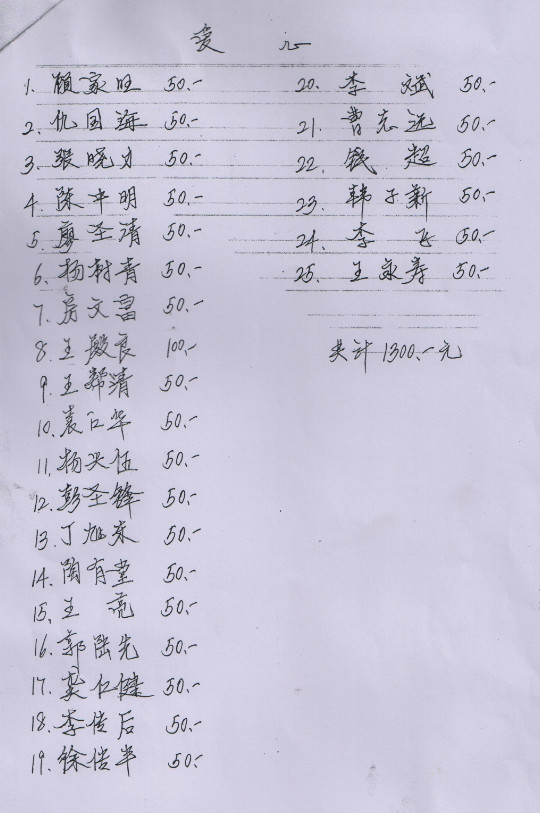 爱 心
1. 顾家旺 50.-
2. 仇国海 50.-
3. 张晓才 50.-
4. 陈中明 50.-
5. 廖圣清 50.-
6. 杨树青 50.-
7. 房文富 50.-
8. 王殿良 100.-
9. 王邦清 50.-
10. 袁仁华 50.-
11. 杨兴伍 50.-
12. 彭圣锋 50.-
13. 丁旭东 50.-
14. 陶有堂 50.-
15. 王 亮 50.-
16. 郭陆先 50.-
17. 栾仁健 50.-
18. 李传后 50.-
19. 徐传半 50.-
20. 李 斌 50.-
21. 曹志远 50.-
22. 钱 超 50.-
23. 韩子新 50.-
24. 李 飞 50.-
25. 王永寿 50.-
共计1300.-元